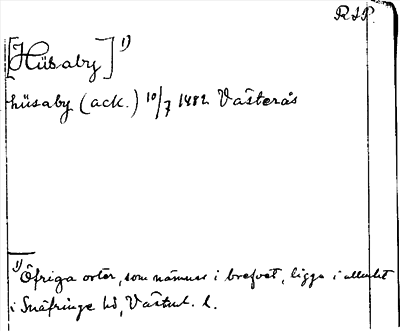 RAP.
[Hüsaby] 1)
hüsaby (ack.) 10/7 1482 Västerås
1) Öfriga orter, som nämnas i brefvet, ligga i allmänhet
i Snäfringe hd, Västml. l.